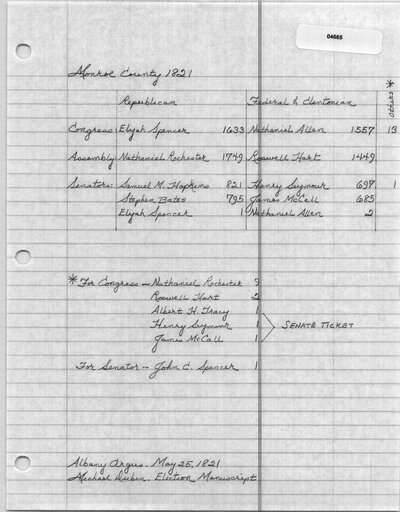 04665
Monroe County 1821
Republican Federal & Clintonian others *
Congress: Elijah Spencer 1633 Nathaniel Allen 1557 13
Assembly Nathaniel Rochester 1749 Roswell Hart 1449
Senators: Samuel M. Hopkins 821 Henry Seymour 697 1
Stephen Bates 795 James McCall 685
Elijah Spencer 1 Nathaniel Allen 2
* For Congress — Nathaniel Rochester
Roswell Hart 2
Albert H. Tracy 1
Henry Seymour 1 SENATE TICKET
James McCall 1
For Senator — John C. Spencer 1
Albany Argus. May 25, 1821
Michael Dubin. Election Manuscript